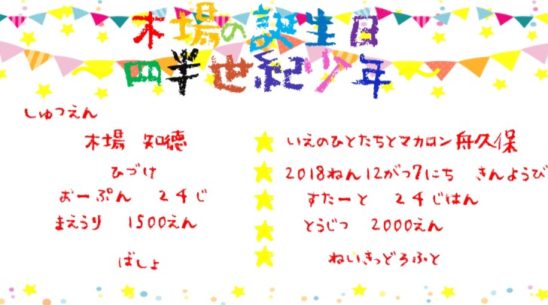 木場の誕生日
四半世紀少年
しゅつえん
木場 知徳 ★ いえのひとたちとマカロン舟久保
ひづけ ★ 2018ねん12がつ7にち きんようび
おーぷん 24じ ★ すたーと 24じはん
まえうり 1500えん ★ とうじつ 2000えん
ばしょ ★ ねいきっどろふと